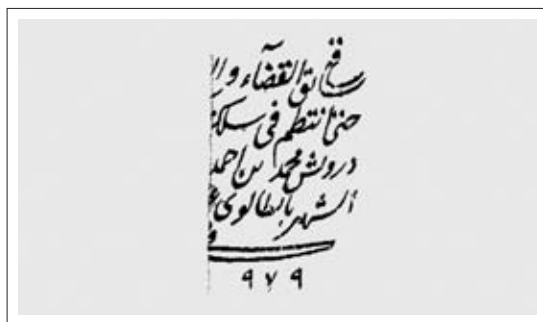 سائق القضاء
حتى انتظم في سلك
درويش محمد بن احمد
الشهير بالطالوي
٩٧٩